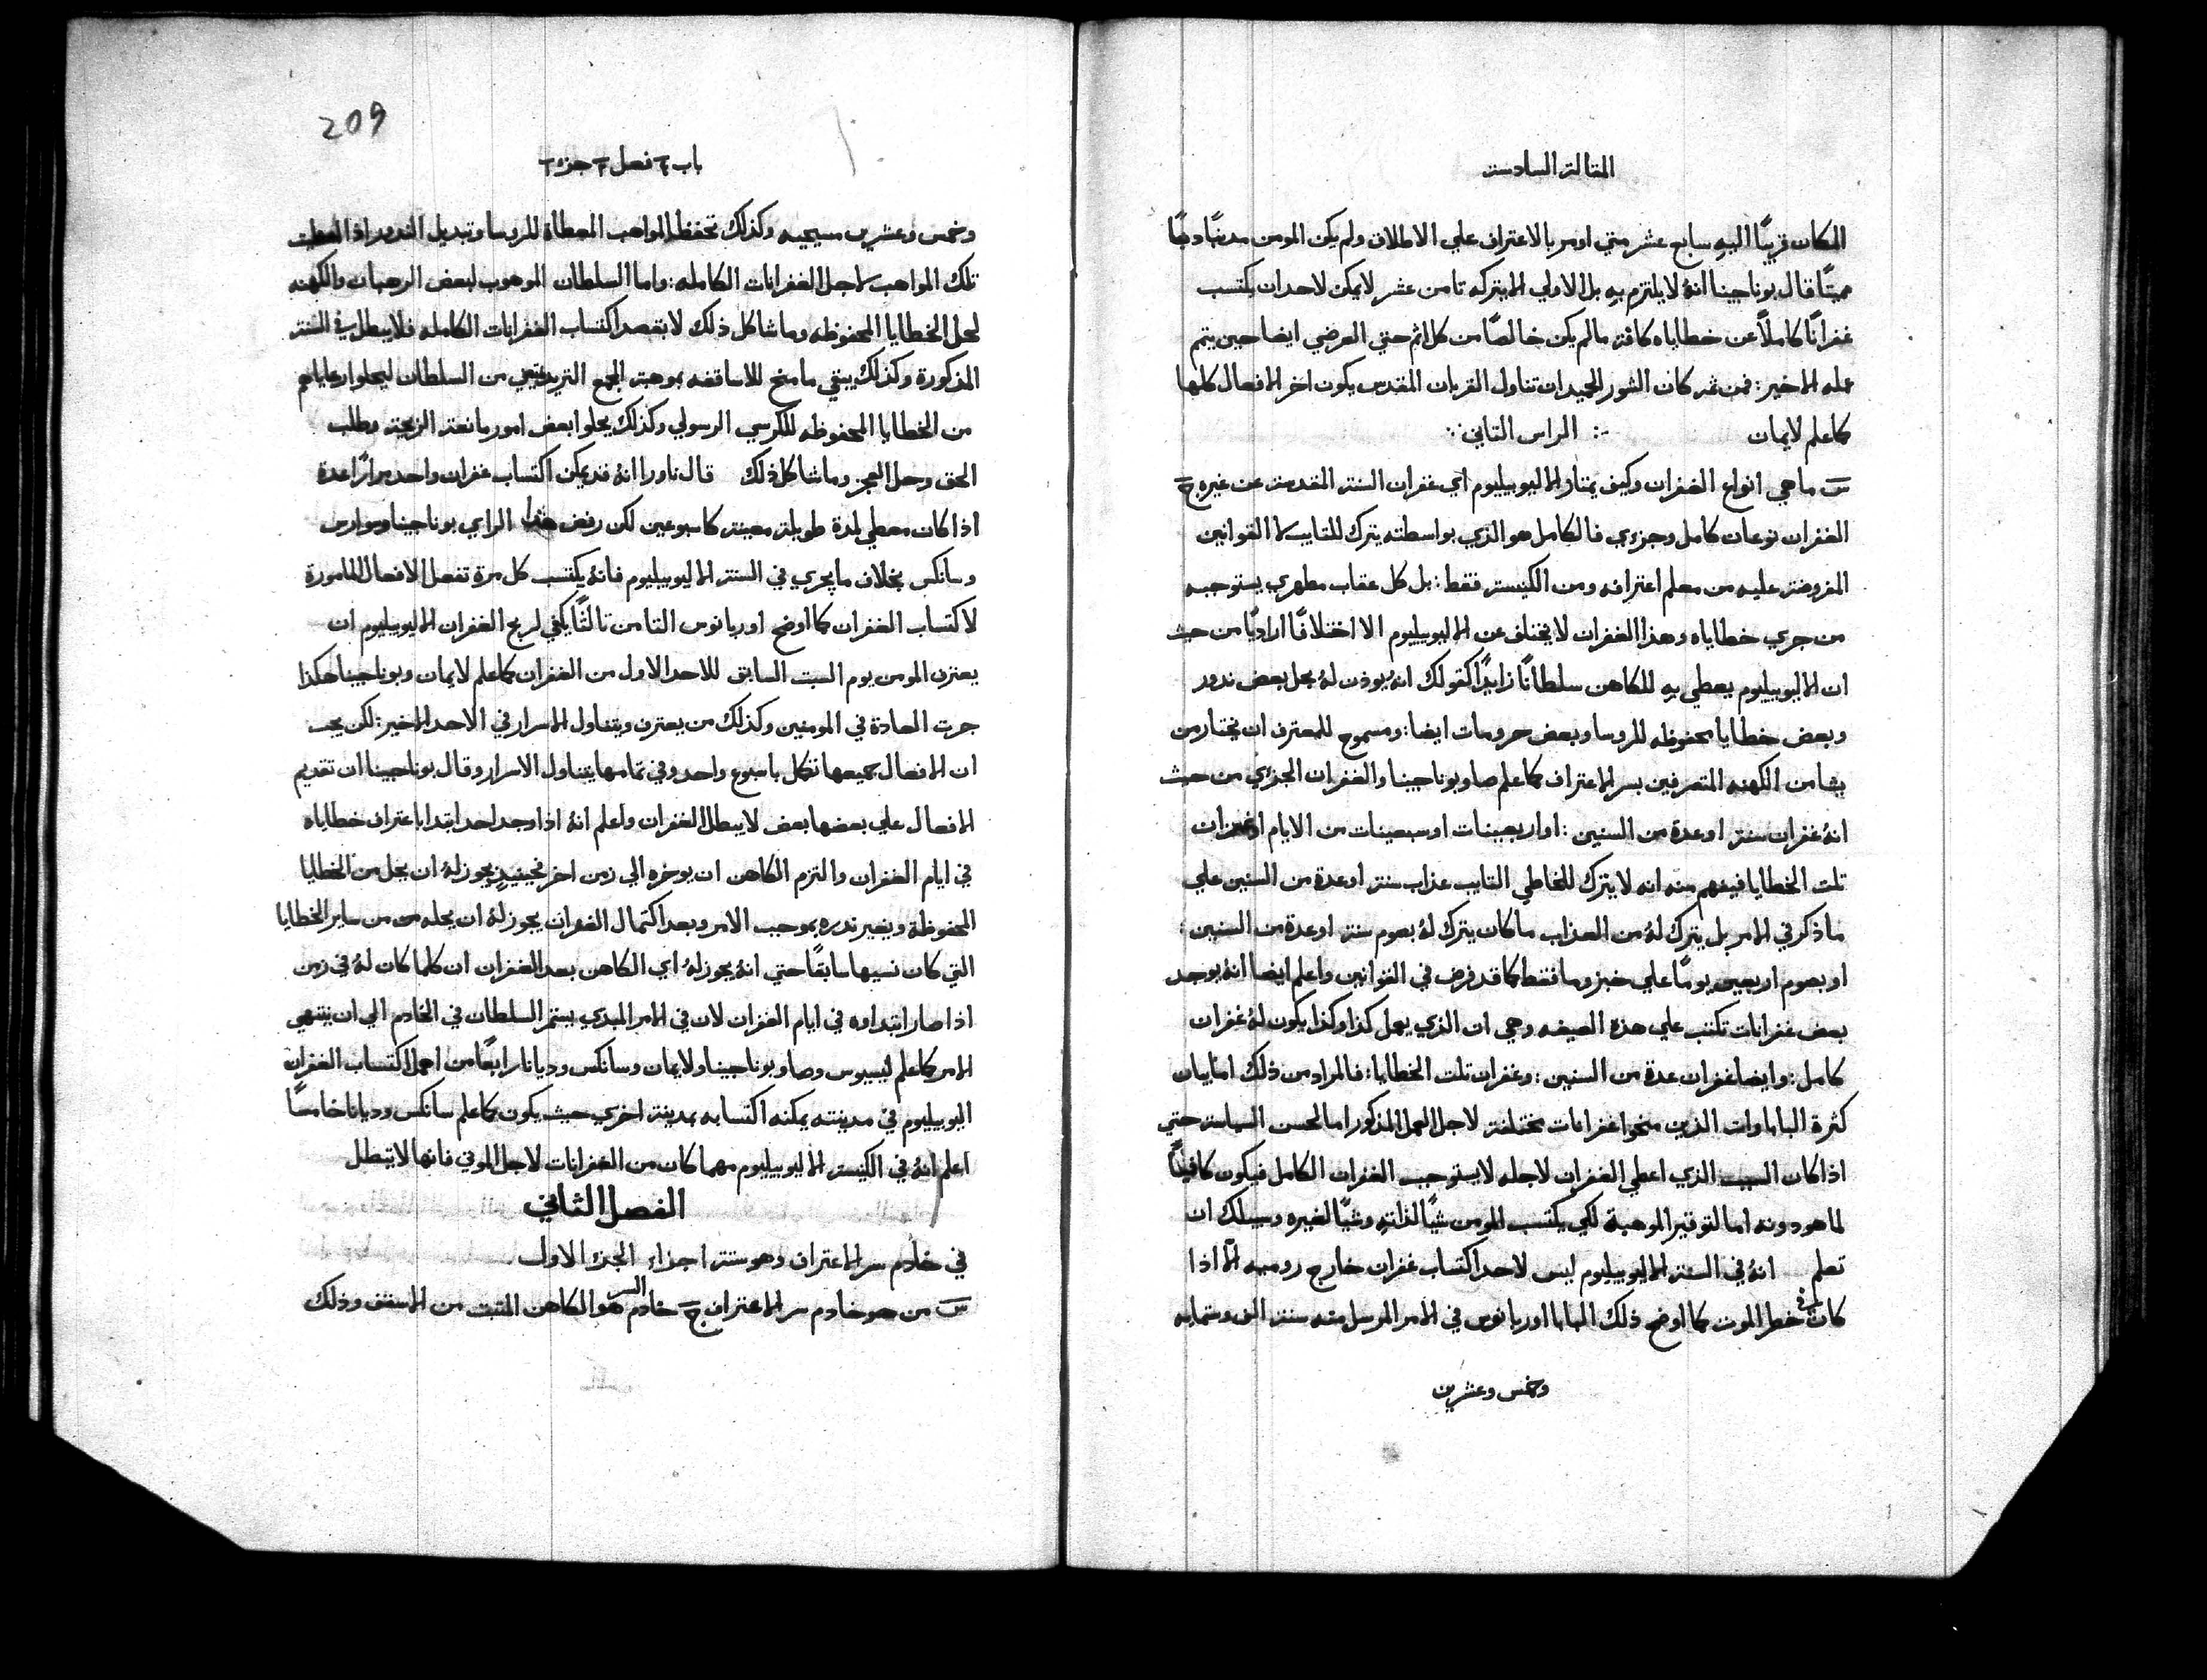 المقالة السادسة
المكان قريبًا اليهِ سابع عشر متي اومر بالاعتراف علي الاطلاق ولم يكن المومن مدنبًا دنبًا
مميتًا قال بوناجينا انهُ لا يلتزم بهِ بل الاولي الا يتركه تامن عشر لا يمكن لاحد ان يكتسب
غفرانًا كاملًا عن خطاياه كافة ما لم يكن خالصًا من كل اثم حتي العرضي ايضا حين يتم
عمله الاخير: فمن ثم كان الشور الحميد ان تناول القربان المقدس يكون اخر الافعال كلها
كما علم لايمان :· الراس التاني ··
س ما هي انواع الغفران وكيف يمتاز الايوبيليوم اي غفران السنة المقدسة عن غيره ج
الغفران نوعان كامل وجزوي فالكامل هو الذي بواسطته يترك للتايب لا القوانين
المفروضة عليه من معلم اعترافه ومن الكنيسة فقط: بل كل عقاب مطهري يستوجبه
من جري خطاياه وهذا الغفران لا يختلف عن الايوبيليوم الا اختلافًا اراديًا من حيث
ان الايوبيليوم يعطي بهِ للكاهن سلطانًا زايدًا كقولك انهُ يوذن لهُ بحل بعض ندور
وبعض خطايا محفوظه للروسا وبعض حرومات ايضا: ومسموح للمعترف ان يختار من
يشا من الكهنه المتصرفين بسر الاعتراف كما علم صا وبوناجينا والغفران الجزوي من حيث
انهُ غفران سنة او عدة من السنين: او اربعينات او سبعينات من الايام او غفران
تلت الخطايا فيفهم منه انه لا يترك للخاطي التايب عذاب سنة او عدة من السنين علي
ما ذكر في الامر بل يترك لهُ من العذاب ما كان يترك لهُ بصوم سنة او عدة من السنين:
او بصوم اربعين يومًا علي خبز وما فقط كما قد فرض في القوانين واعلم ايضا انهُ يوجد
بعض غفرانات تكتب علي هذه الصيغه وهي ان الذي يعمل كذا وكذا يكون لهُ غفران
كامل: وايضا غفران عدة من السنين: وغفران تلت الخطايا: فالمراد من ذلك اما بيان
كثرة الباباوات الذين منحوا غفرانات مختلفة لاجل العمل المذكور اما لحسن السياسة حتي
اذا كان السبب الذي اعطي الغفران لاجله لا يستوجب الغفران الكامل فيكون كافيًا
لما هو دونه اما لتوقير الموهبة لكي يكتسب المومن شيًا لذاتهِ وشيًا لغيره وسبيلك ان
تعلم انهُ في السنة الايوبيليوم ليس لاحد اكتساب غفران خارج روميه الا اذا
كان في خطر الموت كما اوضح ذلك البابا اوربانوس في الامر المرسل منه سنة الف وستمايه
وخمس وعشرين
209
باب ٤ فصل ٢ جزء ٢
وخمس وعشرين مسيحيه وكذلك تحفظ المواهب المعطاة للروسا وتبديل الندور اذا
تلك المواهب لاجل الغفرانات الكامله: واما السلطان الموهوب لبعض الرهبان والكهنه
لحل الخطايا المحفوظه وما شاكل ذلك لا بقصد اكتساب الغفرانات الكامله فلا يبطل في السنة
المذكورة وكذلك يبقي ما منح للاساقفه بموهبة المجمع التريدنتيني من السلطان ليحلوا رعاياهم
من الخطايا المحفوظه للكرسي الرسولي وكذلك يحلوا بعض امور مانعة الزيجة وطلب
الحق وحل العجز وما شاكل ذلك قال ناورا انهُ قد يمكن اكتساب غفران واحد مرارًا عدة
اذا كان معطي لمدة طويلة معينة كاسبوعين لكن رفض هذا الراي بوناجينا وسوارس
وسانكس بخلاف ما يجري في السنة الايوبيليوم فانهُ يكتسب كل مرة تفعل الافعال المامورة
لاكتساب الغفران كما اوضح اوربانوس التامن تالتًا يكفي لربح الغفران الايوبيليوم ان
يعترف المومن يوم السبت السابق للاحد الاول من الغفران كما علم لايمان وبوناجينا هكذا
جرت العادة في المومنين وكذلك من يعترف ويتناول الاسرار في الاحد الاخير: لكن يجب
ان الافعال جميعها تفكل باسبوع واحد وفي تمامها يتناول الاسرار وقال بوناجينا ان تقديم
الافعال علي بعضها بعض لا يبطل الغفران واعلم انهُ اذا وجد احد ابتدا باعتراف خطاياه
في ايام الغفران والتزم الكاهن ان يوخره الي زمن اخر فحينيدٍ يجوز لهُ ان يحل من الخطايا
المحفوظة ويغير ندره بموجب الامر وبعد اكتمال الغفران يجوز لهُ ان يحله من ساير الخطايا
التي كان نسيها سابقًا حتي انهُ يجوز لهُ اي الكاهن بعد الغفران ان كلما كان لهُ في زمن
اذا صار ابتداوه في ايام الغفران لان في الامر المبدي يستمر السلطان في الخادم الي ان ينتهي
الامر كما علم ليسيوس وصا وبوناجينا ولايمان وسانكس وديانا رابعًا من اهمل اكتساب الغفران
اليوبيليوم في مدينته يمكنه اكتسابه بمدينة اخري حيث يكون كما علم سانكس وديانا خامسًا
اعلم انهُ في الكنيسة الايوبيليوم مهما كان من الغفرانات لاجل الموتي فانها لا تبطل
الفصل الثاني
في خادم سر الاعتراف وهو ستة اجزاء الجزء الاول
س من هو خادم سر الاعتراف ج خادم السر هو الكاهن المتبت من الاسقف وذلك